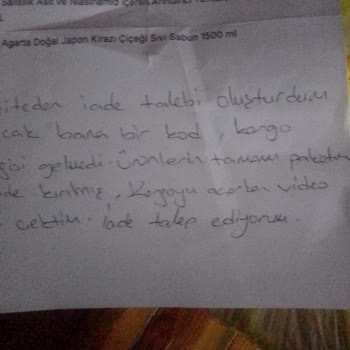 Salisilik Asit ve Niasinamid İçeren Arındırıcı
L
Agarta Doğal Japon Kirazı Çiçeği Sıvı Sabun 1500 ml
iteden iade talebi oluşturdum
cak bana bir kod, kargo
gisi gelmedi. Ürünlerin tamamı paketin
de kırılmış, Kargoyu açarken video
çektim. İade talep ediyorum.